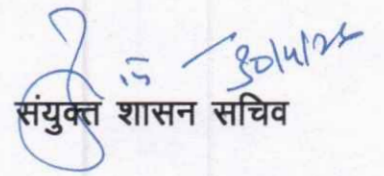 30/4/25
संयुक्त शासन सचिव